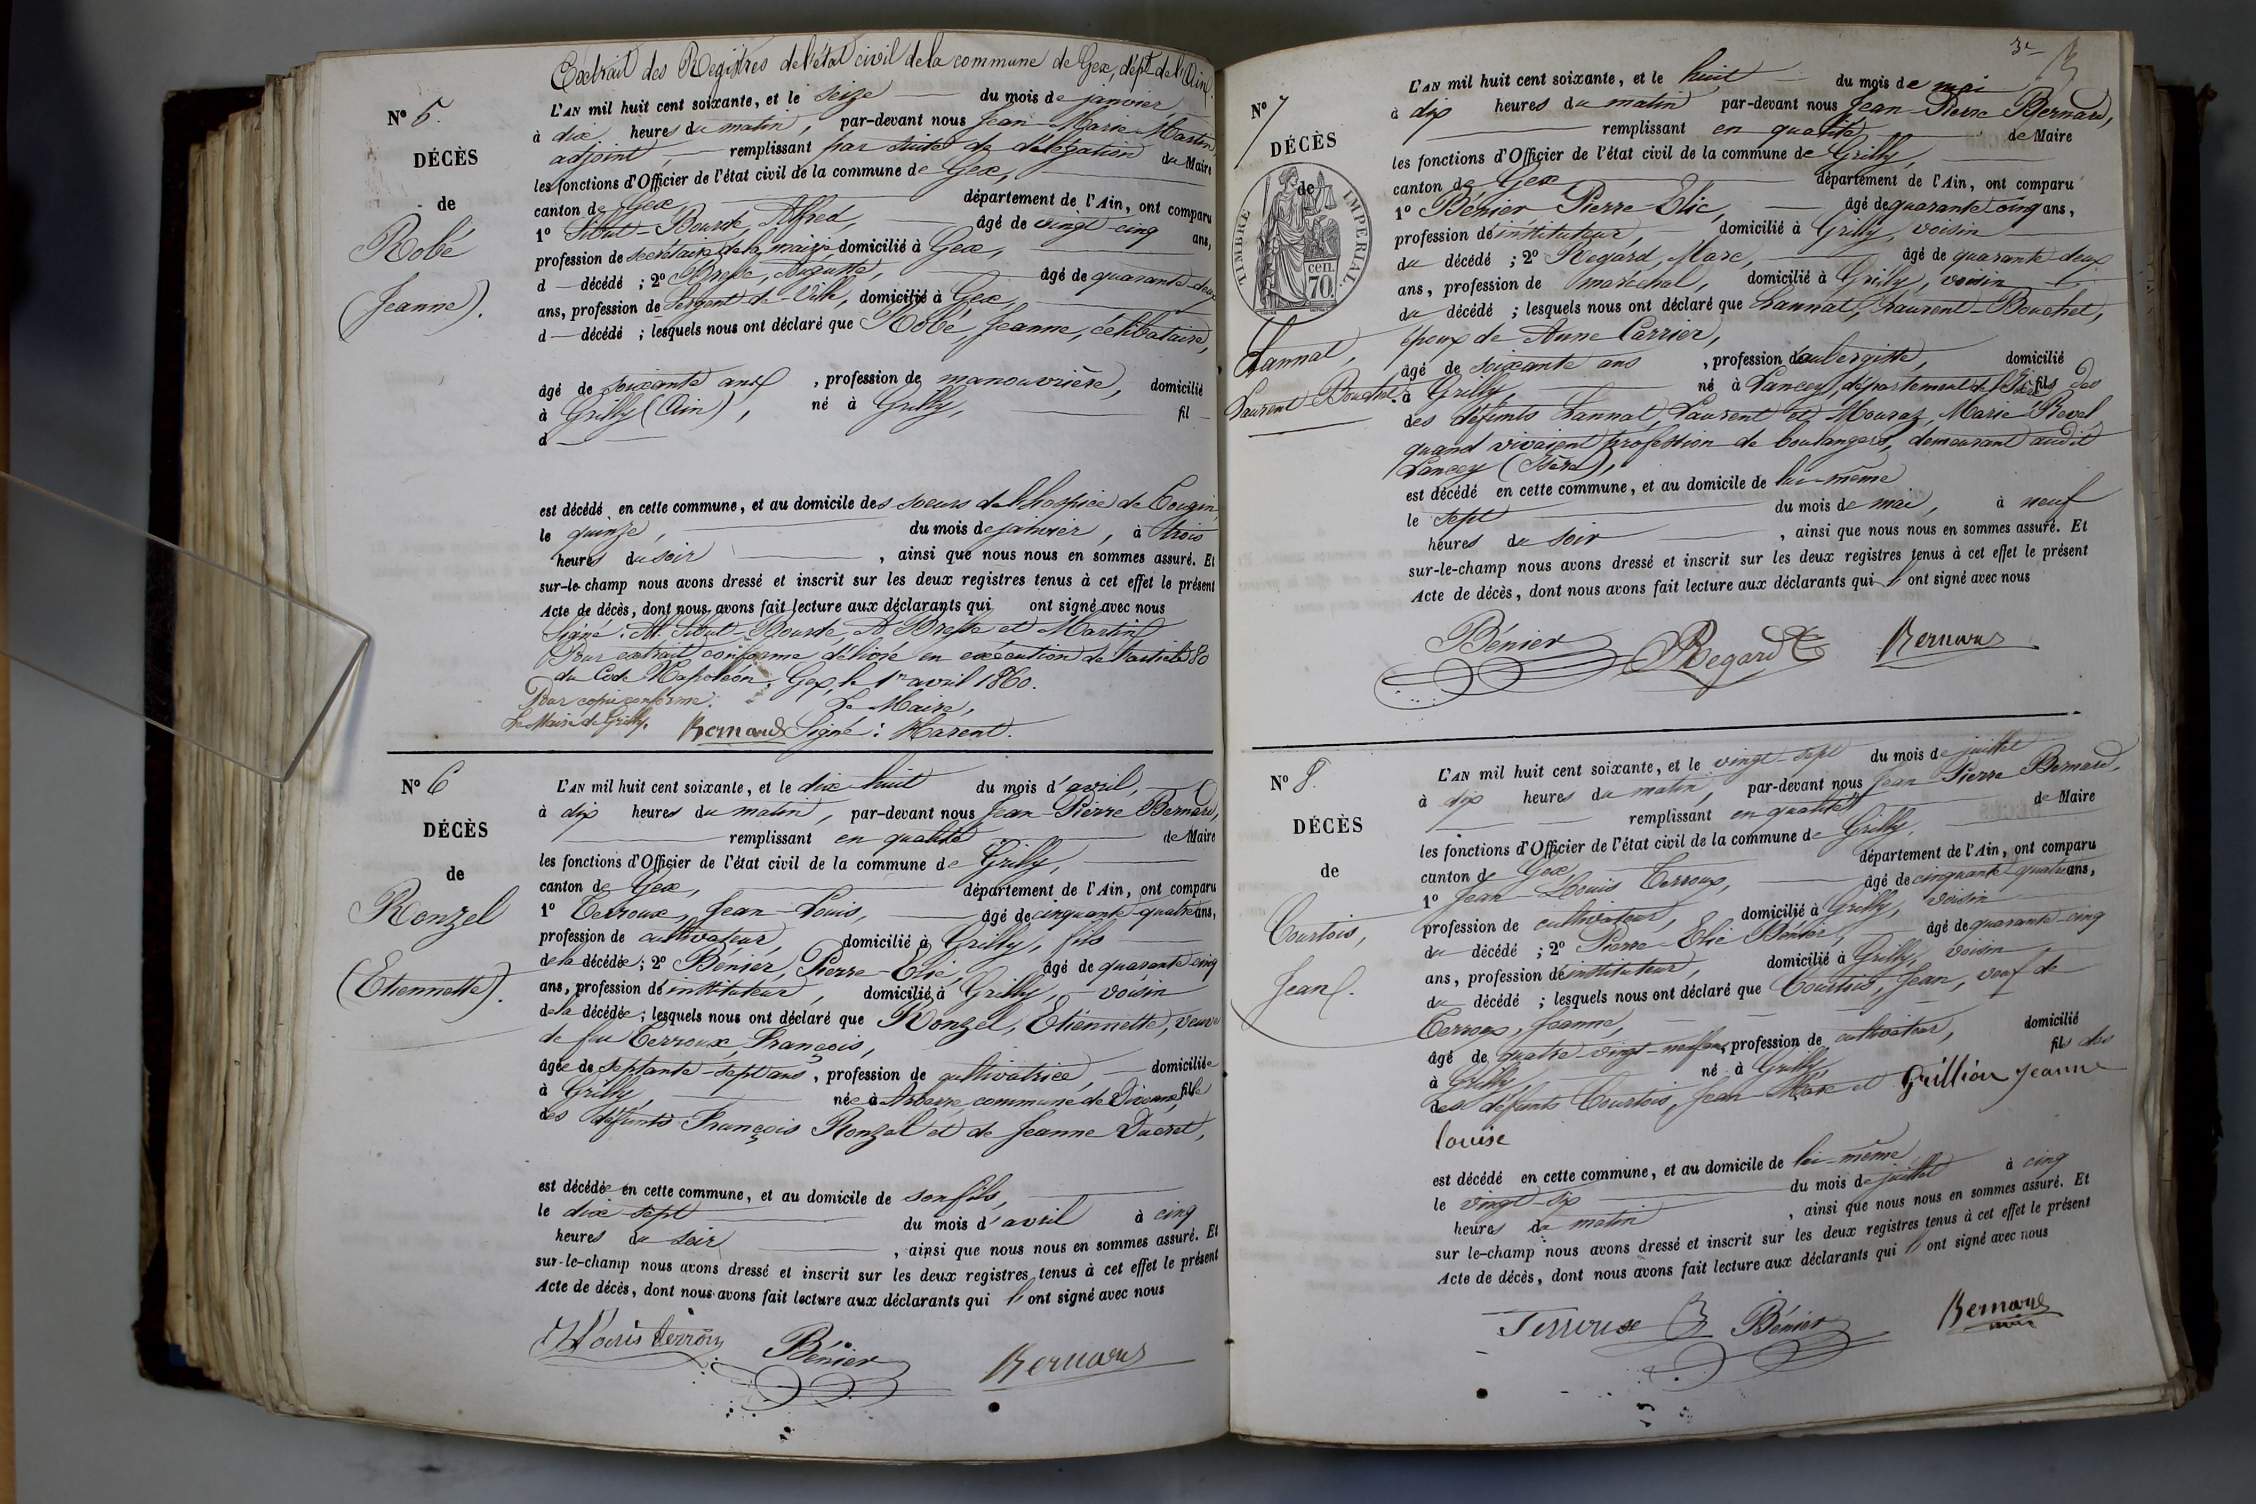 Extrait des Registres de l'état civil de la commune de Gex, dépt de l'Ain.
N° 5.
DÉCÈS
de
Robé
(Jeanne).
L'AN mil huit cent soixante, et le seize du mois de janvier
à dix heures du matin, par-devant nous Jean-Marie Martin,
adjoint, remplissant par suite de délégation du Maire
les fonctions d'Officier de l'état civil de la commune de Gex,
canton de Gex, département de l'Ain, ont comparu
1° Sibut-Bourde, Alfred, âgé de vingt-cinq ans,
profession de secrétaire de la mairie, domicilié à Gex,
d décédé ; 2° Auguste, âgé de quarante-deux
ans, profession de Sergent de Ville, domicilié à Gex,
d décédé ; lesquels nous ont déclaré que Robé, Jeanne, célibataire,
âgé de soixante ans, profession de manouvrière, domicilié
à Grilly (Ain), né à Grilly, fil
d
est décédé en cette commune, et au domicile des sœurs de l'hospice de Tougin,
le quinze, du mois de janvier, à trois
heures du soir, ainsi que nous nous en sommes assuré. Et
sur-le-champ nous avons dressé et inscrit sur les deux registres tenus à cet effet le présent
Acte de décès, dont nous avons fait lecture aux déclarants qui ont signé avec nous
Signé : Al. Sibut-Bourde, A. et Martin
Pour extrait conforme délivré en exécution de l'article 80
du Code Napoléon. Gex, le 1er avril 1860.
Pour copie conforme : Le Maire,
Le Maire de Grilly. Bernard Signé : Harent.
N° 6
DÉCÈS
de
Ronzel
(Etiennette).
L'AN mil huit cent soixante, et le dix-huit du mois d'avril,
à dix heures du matin, par-devant nous Jean-Pierre Bernard,
remplissant en qualité de Maire
les fonctions d'Officier de l'état civil de la commune de Grilly,
canton de Gex, département de l'Ain, ont comparu
1° Terroux, Jean-Louis, âgé de cinquante-quatre ans,
profession de cultivateur, domicilié à Grilly, fils
de la décédée ; 2° Bénier, Pierre-Elie, âgé de quarante-cinq
ans, profession de instituteur, domicilié à Grilly, voisin
de la décédée ; lesquels nous ont déclaré que Ronzel, Etiennette, veuve
de feu Terroux, François,
âgée de septante-sept ans, profession de cultivatrice, domiciliée
à Grilly, née à Arbère, commune de Divonne, fille
des défunts François Ronzel et de Jeanne Ducret,
est décédée en cette commune, et au domicile de son fils,
le dix-sept du mois d'avril à cinq
heures du soir, ainsi que nous nous en sommes assuré. Et
sur-le-champ nous avons dressé et inscrit sur les deux registres tenus à cet effet le présent
Acte de décès, dont nous avons fait lecture aux déclarants qui l'ont signé avec nous
Bénier Bernard
3e
N° 7
DÉCÈS
de
TIMBRE IMPÉRIAL
70 cen.
Lannat,
Laurent Bouchet.
L'AN mil huit cent soixante, et le huit du mois de mai
à dix heures du matin par-devant nous Jean-Pierre Bernard,
remplissant en qualité de Maire
les fonctions d'Officier de l'état civil de la commune de Grilly,
canton de Gex département de l'Ain, ont comparu
1° Bénier Pierre-Elie, âgé de quarante-cinq ans,
profession de instituteur, domicilié à Grilly, voisin
du décédé ; 2° Regard, Marc, âgé de quarante-deux
ans, profession de maréchal, domicilié à Grilly, voisin
du décédé ; lesquels nous ont déclaré que Lannat, Laurent-Bouchet,
époux de Anne Carrier,
âgé de soixante ans, profession d'aubergiste, domicilié
à Grilly né à Lancey, département de l'Isère fils des
des défunts Lannat, Laurent et Mouraz, Marie Revel
quand vivaient profession de boulangers, demeurant audit
Lancey (Isère),
est décédé en cette commune, et au domicile de lui-même
le sept du mois de mai, à neuf
heures du soir, ainsi que nous nous en sommes assuré. Et
sur-le-champ nous avons dressé et inscrit sur les deux registres tenus à cet effet le présent
Acte de décès, dont nous avons fait lecture aux déclarants qui l'ont signé avec nous
Bénier Regard Bernard
N° 8.
DÉCÈS
de
Courtois,
Jean.
L'AN mil huit cent soixante, et le vingt-sept du mois de juillet
à dix heures du matin, par-devant nous Jean Pierre Bernard,
remplissant en qualité de Maire
les fonctions d'Officier de l'état civil de la commune de Grilly,
canton de Gex, département de l'Ain, ont comparu
1° Jean-Louis Terroux, âgé de cinquante-quatre ans,
profession de cultivateur, domicilié à Grilly, voisin
du décédé ; 2° Pierre-Elie Bénier, âgé de quarante-cinq
ans, profession de instituteur, domicilié à Grilly, voisin
du décédé ; lesquels nous ont déclaré que Courtois, Jean, veuf de
Terroux, Jeanne,
âgé de quatre-vingt-neuf ans, profession de cultivateur, domicilié
à Grilly, né à Grilly, fils des
des défunts Courtois, Jean-Marc et Grillion Jeanne
Louise
est décédé en cette commune, et au domicile de lui-même
le vingt-six du mois de juillet à cinq
heures du matin, ainsi que nous nous en sommes assuré. Et
sur le-champ nous avons dressé et inscrit sur les deux registres tenus à cet effet le présent
Acte de décès, dont nous avons fait lecture aux déclarants qui l'ont signé avec nous
Bénier Bernard